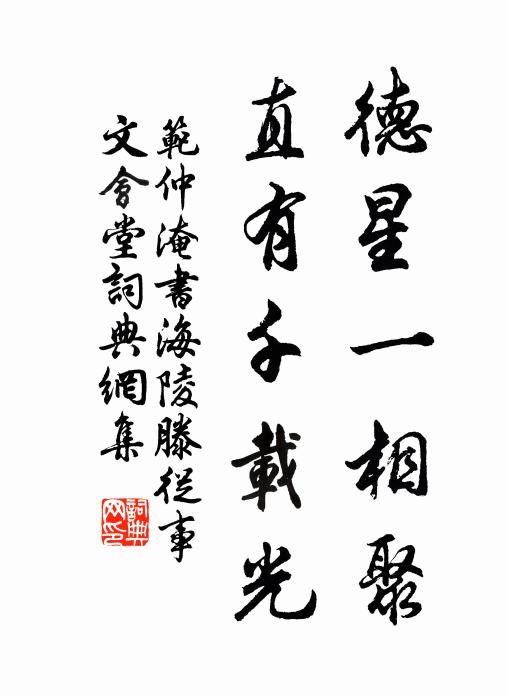 德星一相聚
直有千載光
範仲淹書海陵滕從事
文會堂詞典網集
詞典
网印